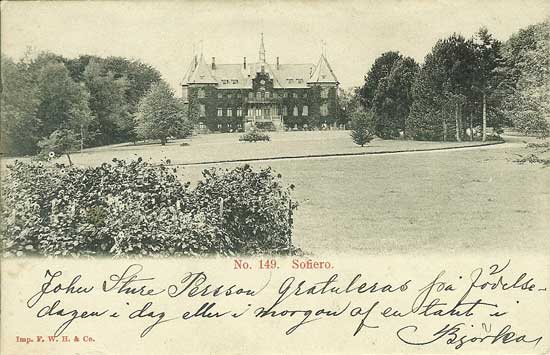 No. 149. Sofiero.
John Sture Persson Gratuleras på Födelse-
dagen i dag eller i morgon af en tant i
Björka
Imp. F. W. H. & Co.